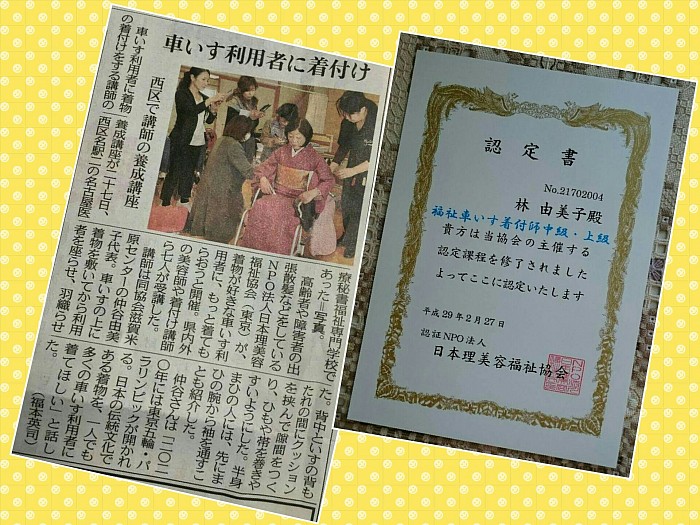 車いす利用者に着付け
西区で講師の養成講座
車いす利用者に着物
の着付けをする講師の
養成講座が二十七日、
西区名駅二の名古屋医
療秘書福祉専門学校で
あった＝写真。
高齢者や障害者の出
張散髪などをしている
ＮＰＯ法人日本理美容
福祉協会（東京）が、
着物が好きな車いす利
用者に、もっと着ても
らおうと開催。県内外
の美容師や着付け講師
ら七人が受講した。
講師は同協会滋賀米
原センターの仲谷由美
子代表。車いすの上に
着物を敷いてから利用
者を座らせ、羽織らせ
た。背中といすの背も
たれの間にクッション
を挟んで隙間をつく
り、ひもや帯を巻きや
すいようにした。半身
まひの人には、先にま
ひの腕から袖を通すこ
とも紹介した。
仲谷さんは「二〇二
〇年には東京五輪・パ
ラリンピックが開かれ
る。日本の伝統文化で
ある着物を、一人でも
多くの車いす利用者に
着てほしい」と話し
（福本英司）
認定書
No.21702004
林 由美子殿
福祉車いす着付師中級・上級
貴方は当協会の主催する
認定課程を修了されました
よってここに認定いたします
平成29年2月27日
認証NPO法人
日本理美容福祉協会